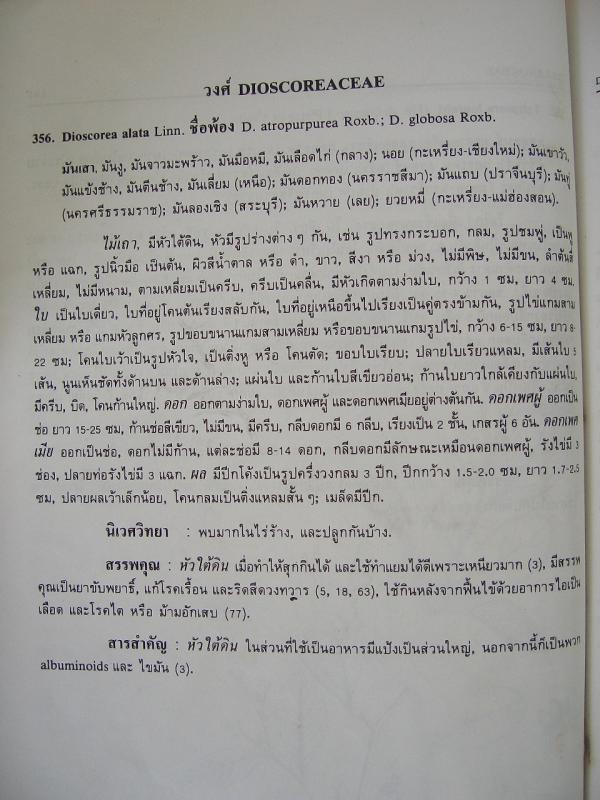 วงศ์ DIOSCOREACEAE
356. Dioscorea alata Linn. ชื่อพ้อง D. atropurpurea Roxb.; D. globosa Roxb.
มันเสา, มันงู, มันจาวมะพร้าว, มันมือหมี, มันเลือดไก่ (กลาง); นอย (กะเหรี่ยง-เชียงใหม่); มันเขาวัว,
มันแข้งช้าง, มันตีนช้าง, มันเลี่ยม (เหนือ); มันดอกทอง (นครราชสีมา); มันแถบ (ปราจีนบุรี);
(นครศรีธรรมราช); มันลองเชิง (สระบุรี); มันหวาย (เลย); ยวยหมี่ (กะเหรี่ยง-แม่ฮ่องสอน).
ไม้เถา, มีหัวใต้ดิน, หัวมีรูปร่างต่าง ๆ กัน, เช่น รูปทรงกระบอก, กลม, รูปชมพู่, เป็นพู
หรือ แฉก, รูปนิ้วมือ เป็นต้น, ผิวสีน้ำตาล หรือ ดำ, ขาว, สีงา หรือ ม่วง, ไม่มีพิษ, ไม่มีขน, ลำต้นสี่
เหลี่ยม, ไม่มีหนาม, ตามเหลี่ยมเป็นครีบ, ครีบเป็นคลื่น, มีหัวเกิดตามง่ามใบ, กว้าง 1 ซม, ยาว 4 ซม.
ใบ เป็นใบเดี่ยว, ใบที่อยู่โคนต้นเรียงสลับกัน, ใบที่อยู่เหนือขึ้นไปเรียงเป็นคู่ตรงข้ามกัน, รูปไข่แกมสาม
เหลี่ยม หรือ แกมหัวลูกศร, รูปขอบขนานแกมสามเหลี่ยม หรือขอบขนานแกมรูปไข่, กว้าง 6-15 ซม, ยาว 8-
22 ซม; โคนใบเว้าเป็นรูปหัวใจ, เป็นติ่งหู หรือ โคนตัด; ขอบใบเรียบ; ปลายใบเรียวแหลม, มีเส้นใบ 5
เส้น, นูนเห็นชัดทั้งด้านบน และด้านล่าง; แผ่นใบ และก้านใบสีเขียวอ่อน; ก้านใบยาวใกล้เคียงกับแผ่นใบ,
มีครีบ, บิด, โคนก้านใหญ่. ดอก ออกตามง่ามใบ, ดอกเพศผู้ และดอกเพศเมียอยู่ต่างต้นกัน. ดอกเพศผู้ ออกเป็น
ช่อ ยาว 15-25 ซม, ก้านช่อสีเขียว, ไม่มีขน, มีครีบ, กลีบดอกมี 6 กลีบ, เรียงเป็น 2 ชั้น, เกสรผู้ 6 อัน. ดอกเพศ
เมีย ออกเป็นช่อ, ดอกไม่มีก้าน, แต่ละช่อมี 8-14 ดอก, กลีบดอกมีลักษณะเหมือนดอกเพศผู้, รังไข่มี 3
ช่อง, ปลายท่อรังไข่มี 3 แฉก. ผล มีปีกโค้งเป็นรูปครึ่งวงกลม 3 ปีก, ปีกกว้าง 1.5-2.0 ซม, ยาว 1.7-2.5
ซม, ปลายผลเว้าเล็กน้อย, โคนกลมเป็นติ่งแหลมสั้น ๆ; เมล็ดมีปีก.
นิเวศวิทยา : พบมากในไร่ร้าง, และปลูกกันบ้าง.
สรรพคุณ : หัวใต้ดิน เมื่อทำให้สุกกินได้ และใช้ทำแยมได้ดีเพราะเหนียวมาก (3), มีสรรพ
คุณเป็นยาขับพยาธิ์, แก้โรคเรื้อน และริดสีดวงทวาร (5, 18, 63), ใช้กินหลังจากฟื้นไข้ด้วยอาการไอเป็น
เลือด และโรคไต หรือ ม้ามอักเสบ (77).
สารสำคัญ : หัวใต้ดิน ในส่วนที่ใช้เป็นอาหารมีแป้งเป็นส่วนใหญ่, นอกจากนี้ก็เป็นพวก
albuminoids และ ไขมัน (3).